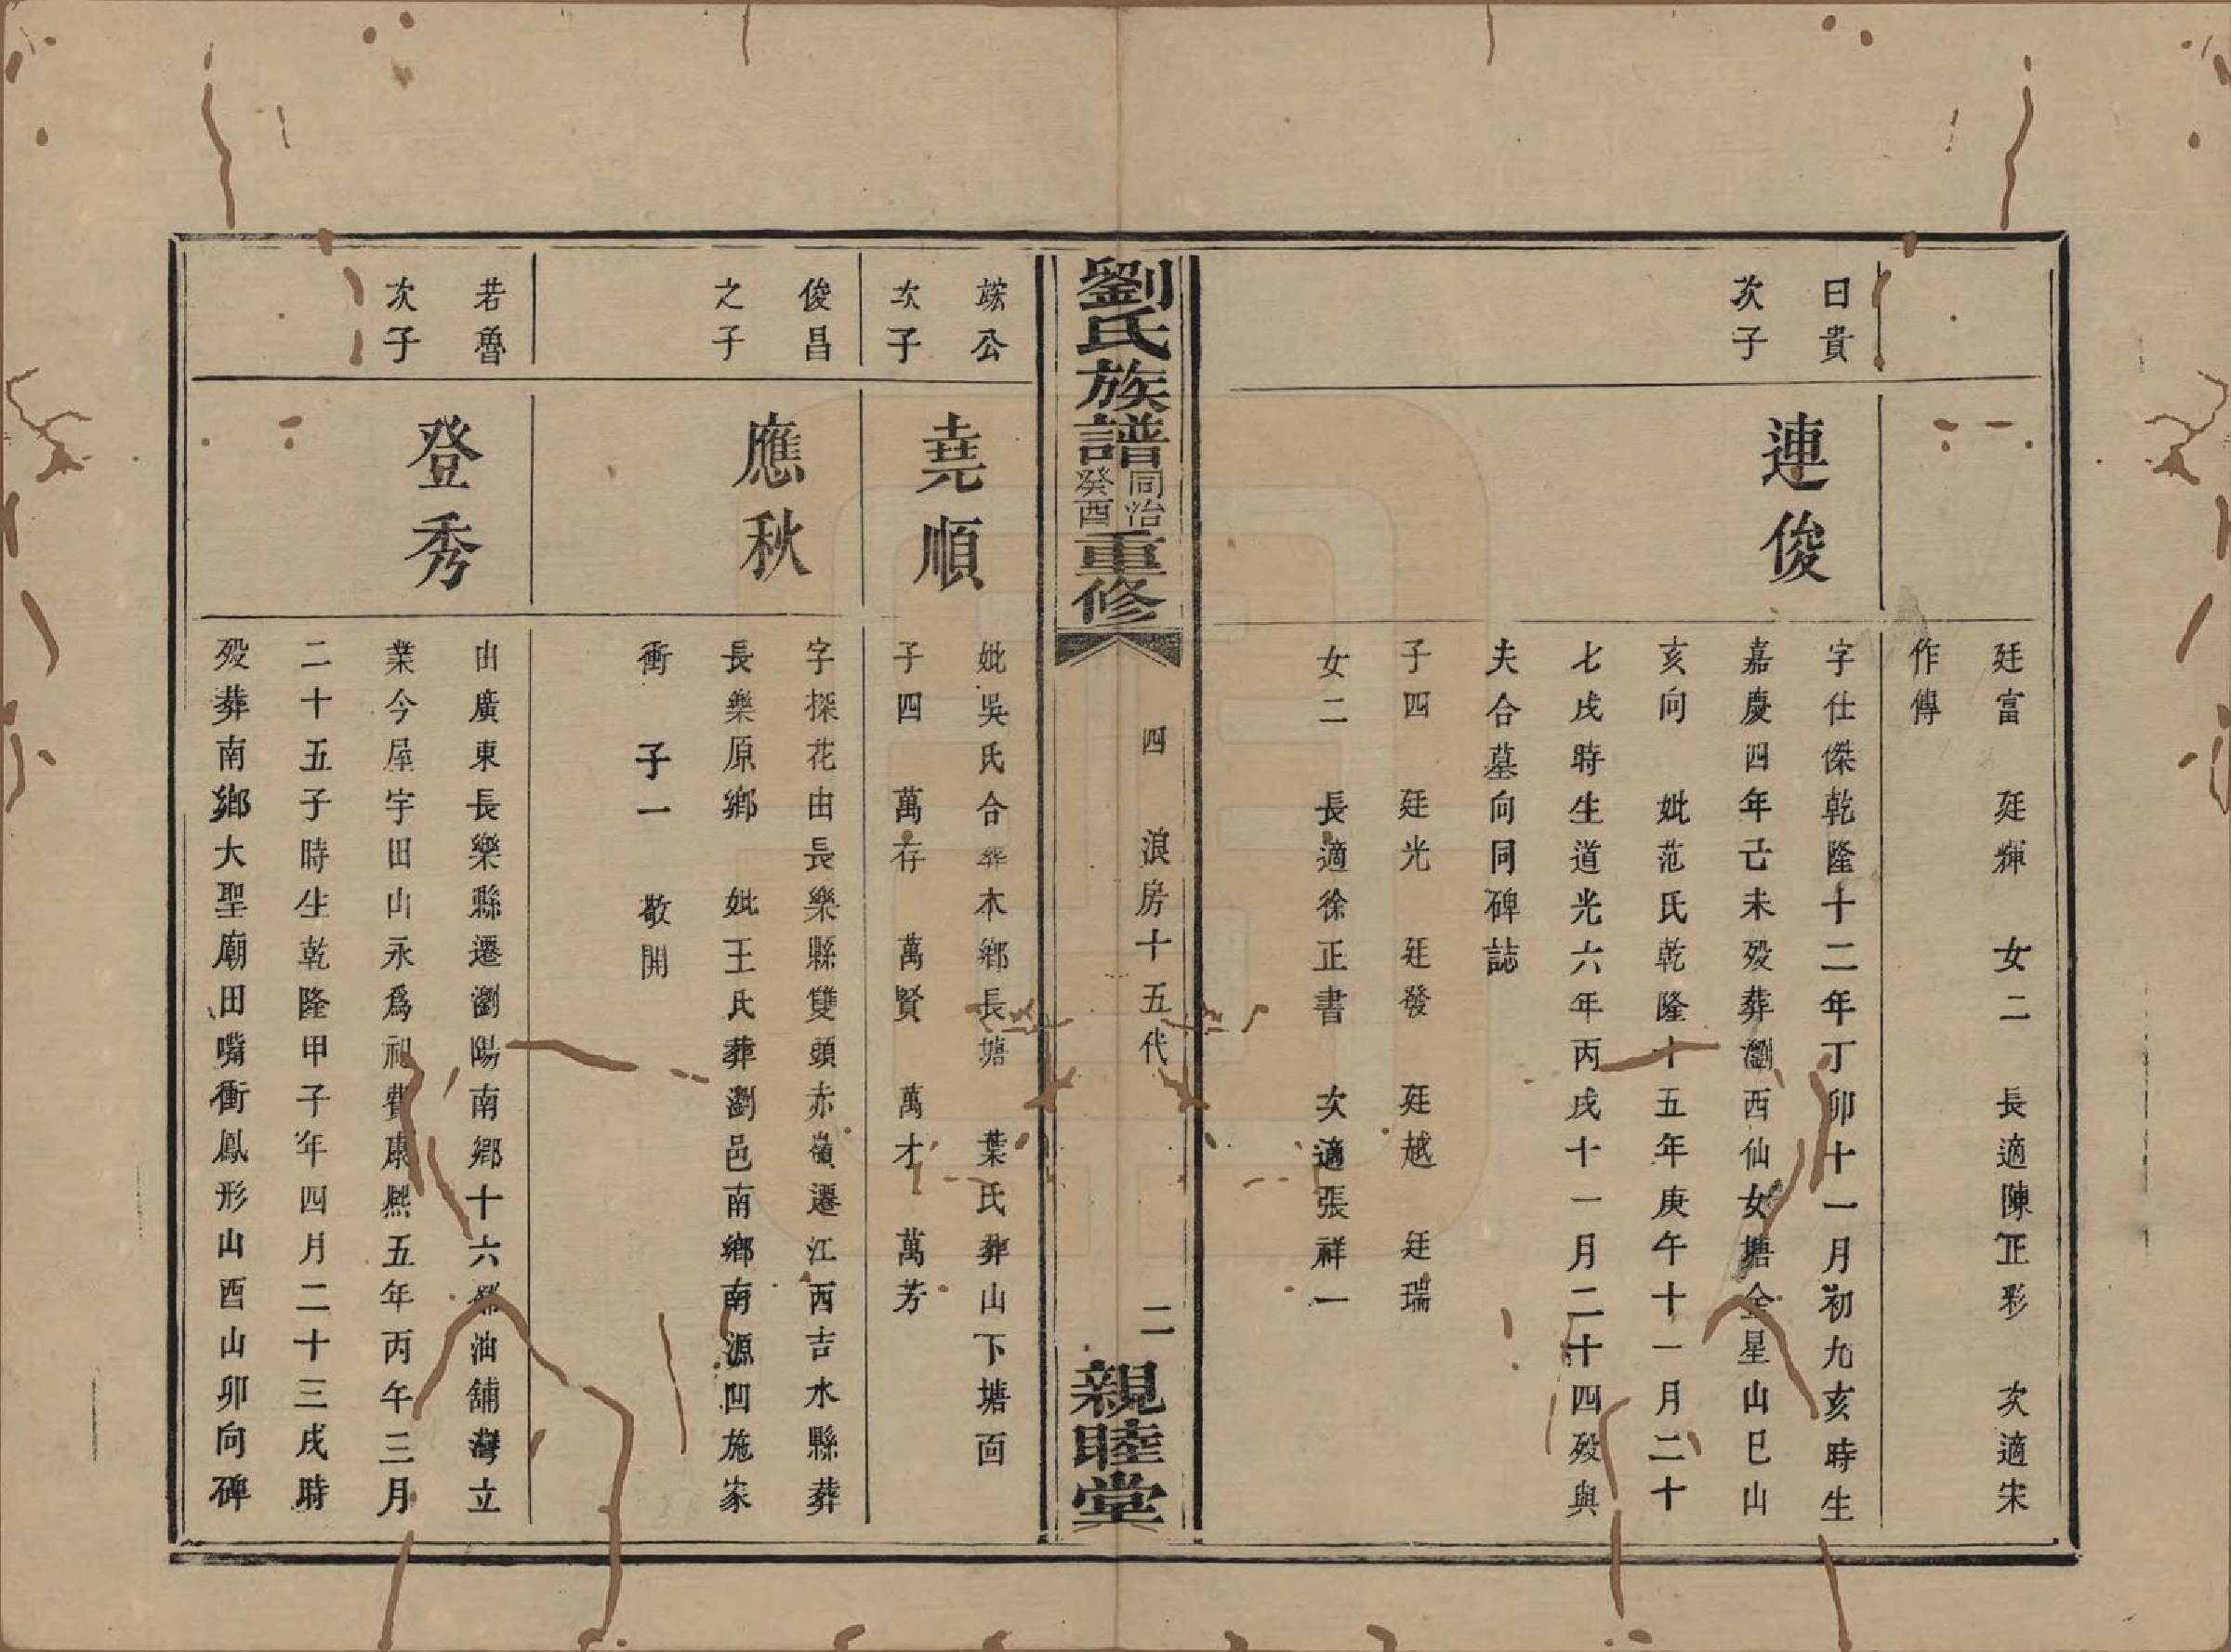 廷富 廷輝 女二 長適陳正彩 次適宋
作傳
曰貴
次子
連俊
字仕傑乾隆十二年丁卯十一月初九亥時生
嘉慶四年己未歿葬瀏西仙女塘全星山巳山
亥向 妣范氏乾隆十五年庚午十一月二十
七戌時生道光六年丙戌十一月二十四歿與
夫合墓向同碑誌
子四 廷光 廷發 廷越 廷瑞
女二 長適徐正書 次適張祥一
劉氏族譜同治癸酉重修
四 浪房十五代 二
親睦堂
公
次子
堯順
妣吳氏合葬木鄉長塘 葉氏葬山下塘面
子四 萬存 萬賢 萬才 萬芳
俊昌
之子
應秋
字探花由長樂縣雙頭赤嶺遷江西吉水縣葬
長樂原鄉 妣王氏葬瀏邑南鄉南源凹施家
衝 子一 敬開
若魯
次子
登秀
由廣東長樂縣遷瀏陽南鄉十六都油舖灣立
業今屋宇田山永爲祀費康熙五年丙午三月
二十五子時生乾隆甲子年四月二十三戌時
歿葬南鄉大聖廟田嘴衝鳳形山酉山卯向碑